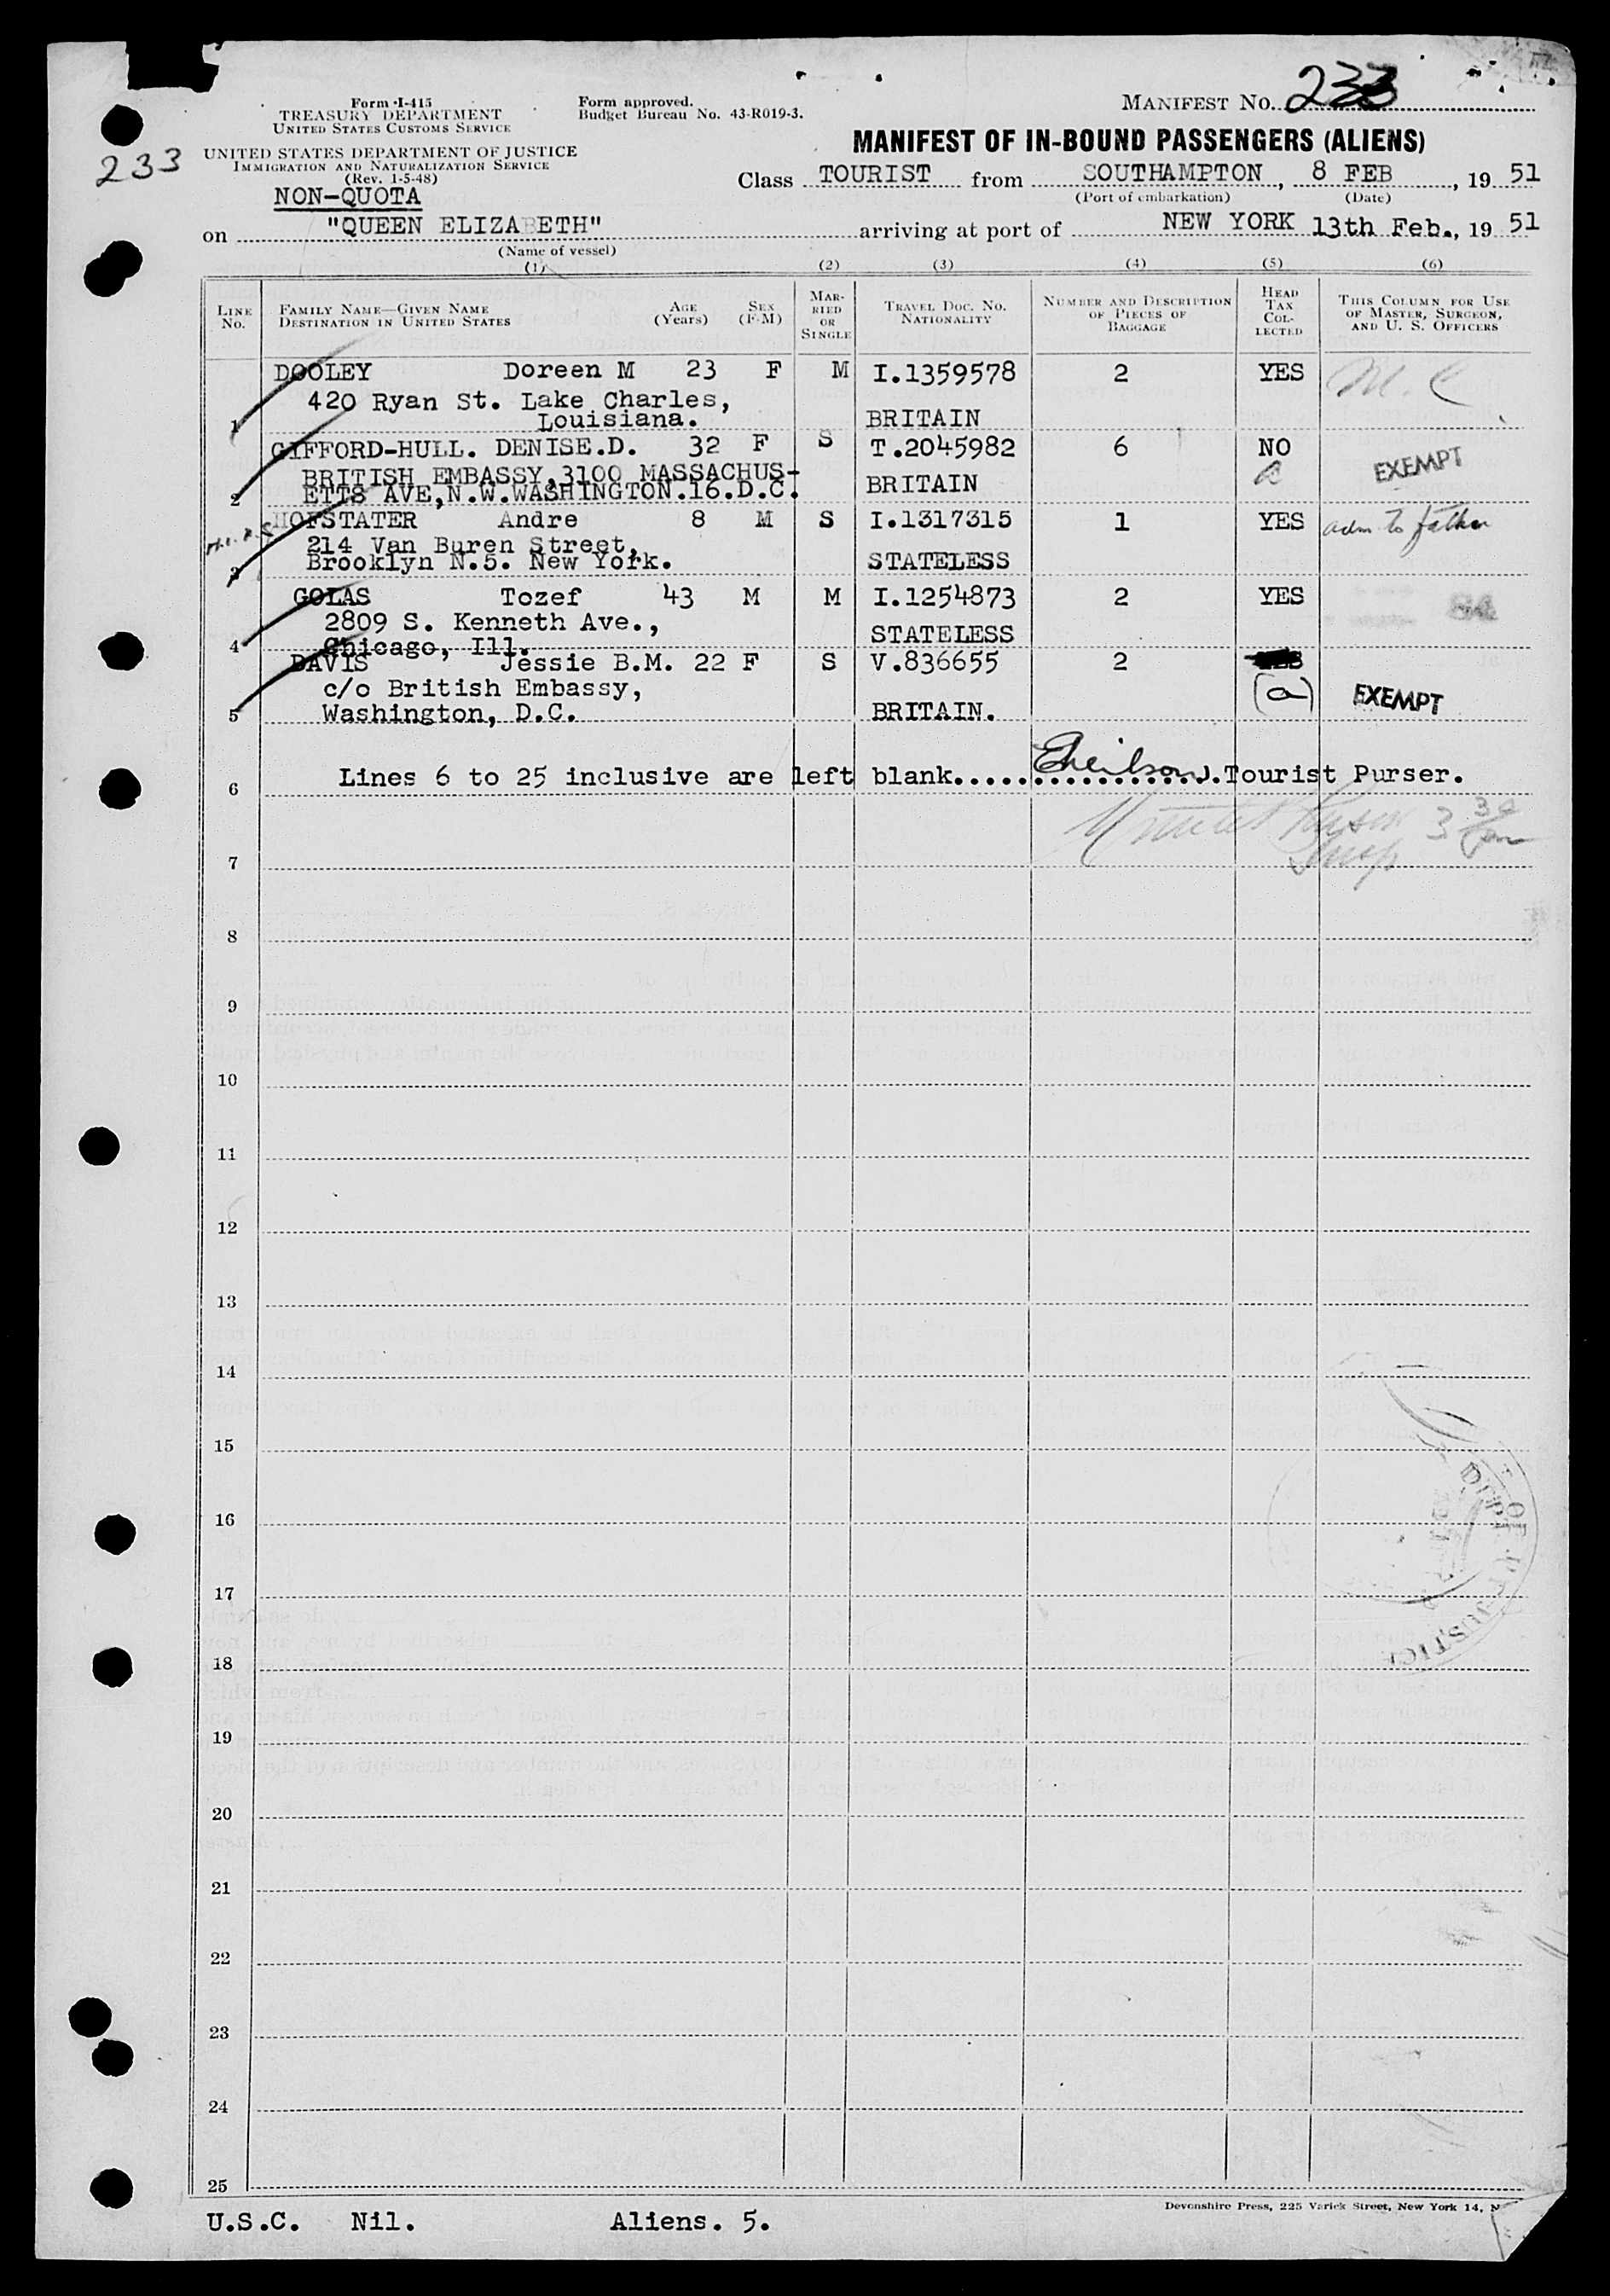 Form I-415
TREASURY DEPARTMENT
UNITED STATES CUSTOMS SERVICE
Form approved.
Budget Bureau No. 43-R019-3.
MANIFEST No. 233
233
UNITED STATES DEPARTMENT OF JUSTICE
IMMIGRATION AND NATURALIZATION SERVICE
(Rev. 1-5-48)
NON-QUOTA
MANIFEST OF IN-BOUND PASSENGERS (ALIENS)
Class TOURIST from SOUTHAMPTON, 8 FEB, 19 51
(Port of embarkation) (Date)
on "QUEEN ELIZABETH" arriving at port of NEW YORK 13th Feb., 19 51
(Name of vessel)
(1) (2) (3) (4) (5) (6)
LINE No. FAMILY NAME—GIVEN NAME DESTINATION IN UNITED STATES AGE (Years) SEX (F-M) MARRIED OR SINGLE TRAVEL DOC. NO. NATIONALITY NUMBER AND DESCRIPTION OF PIECES OF BAGGAGE HEAD TAX COLLECTED THIS COLUMN FOR USE OF MASTER, SURGEON, AND U. S. OFFICERS
DOOLEY Doreen M 23 F M I.1359578 2 YES M. C
420 Ryan St. Lake Charles,
1 Louisiana. BRITAIN
GIFFORD-HULL. DENISE.D. 32 F S T.2045982 6 NO EXEMPT
BRITISH EMBASSY,3100 MASSACHUS-
2 ETTS AVE,N.W.WASHINGTON.16.D.C. BRITAIN
HOFSTATER Andre 8 M S I.1317315 1 YES adm to father
214 Van Buren Street,
3 Brooklyn N.5. New York. STATELESS
GOLAS Tozef 43 M M I.1254873 2 YES
2809 S. Kenneth Ave.,
4 Chicago, Ill. STATELESS
DAVIS Jessie B.M. 22 F S V.836655 2
c/o British Embassy, (a) EXEMPT
5 Washington, D.C. BRITAIN.
6 Lines 6 to 25 inclusive are left blank..... Tourist Purser.
7
8
9
10
11
12
13
14
15
16
17
18
19
20
21
22
23
24
25
DEPT OF JUSTICE
Devonshire Press, 225 Varick Street, New York 14, N
U.S.C. Nil. Aliens. 5.